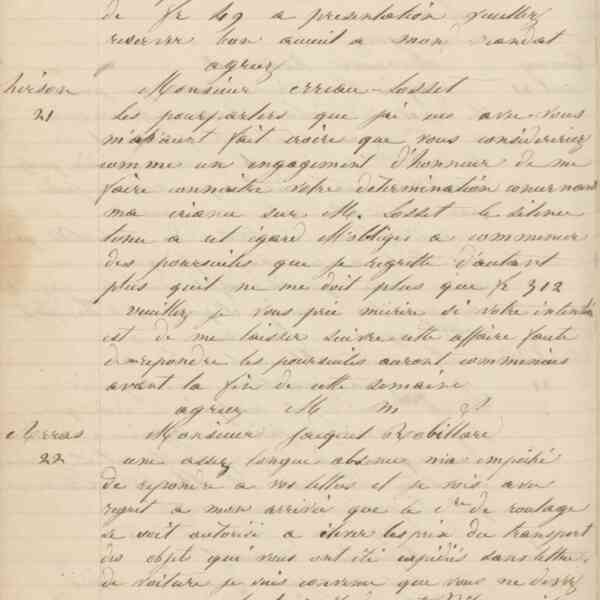 de fr 49 a presentation veuillez
reserver bon accueil a mon mandat
agreez
hirson Monsieur Losset
21 Les pourparlers que j'ai eus avec vous
m'avaient fait croire que vous considereriez
comme un engagement d'honneur de me
faire connaitre votre détermination concernant
ma créance sur M. Losset le silence
tenu a cet égard M'oblige a commencer
des poursuites que je regrette d'autant
plus qu'il ne me doit plus que fr 312
veuillez je vous prie m'ecrire si votre intention
est de me laisser suivre cette affaire faute
de repondre les poursuites auront commencées
avant la fin de cette semaine
agreez M m
Arras Monsieur Robillare
22 une assez longue absence m'a empéché
de repondre a vos lettres et je vois avec
regret a mon arrivée que le Cre de roulage
se soit autorisé a élever les prix du transport
des objets qui vous ont été expédiés sans lettre
de voiture je suis convenu que vous ne devez